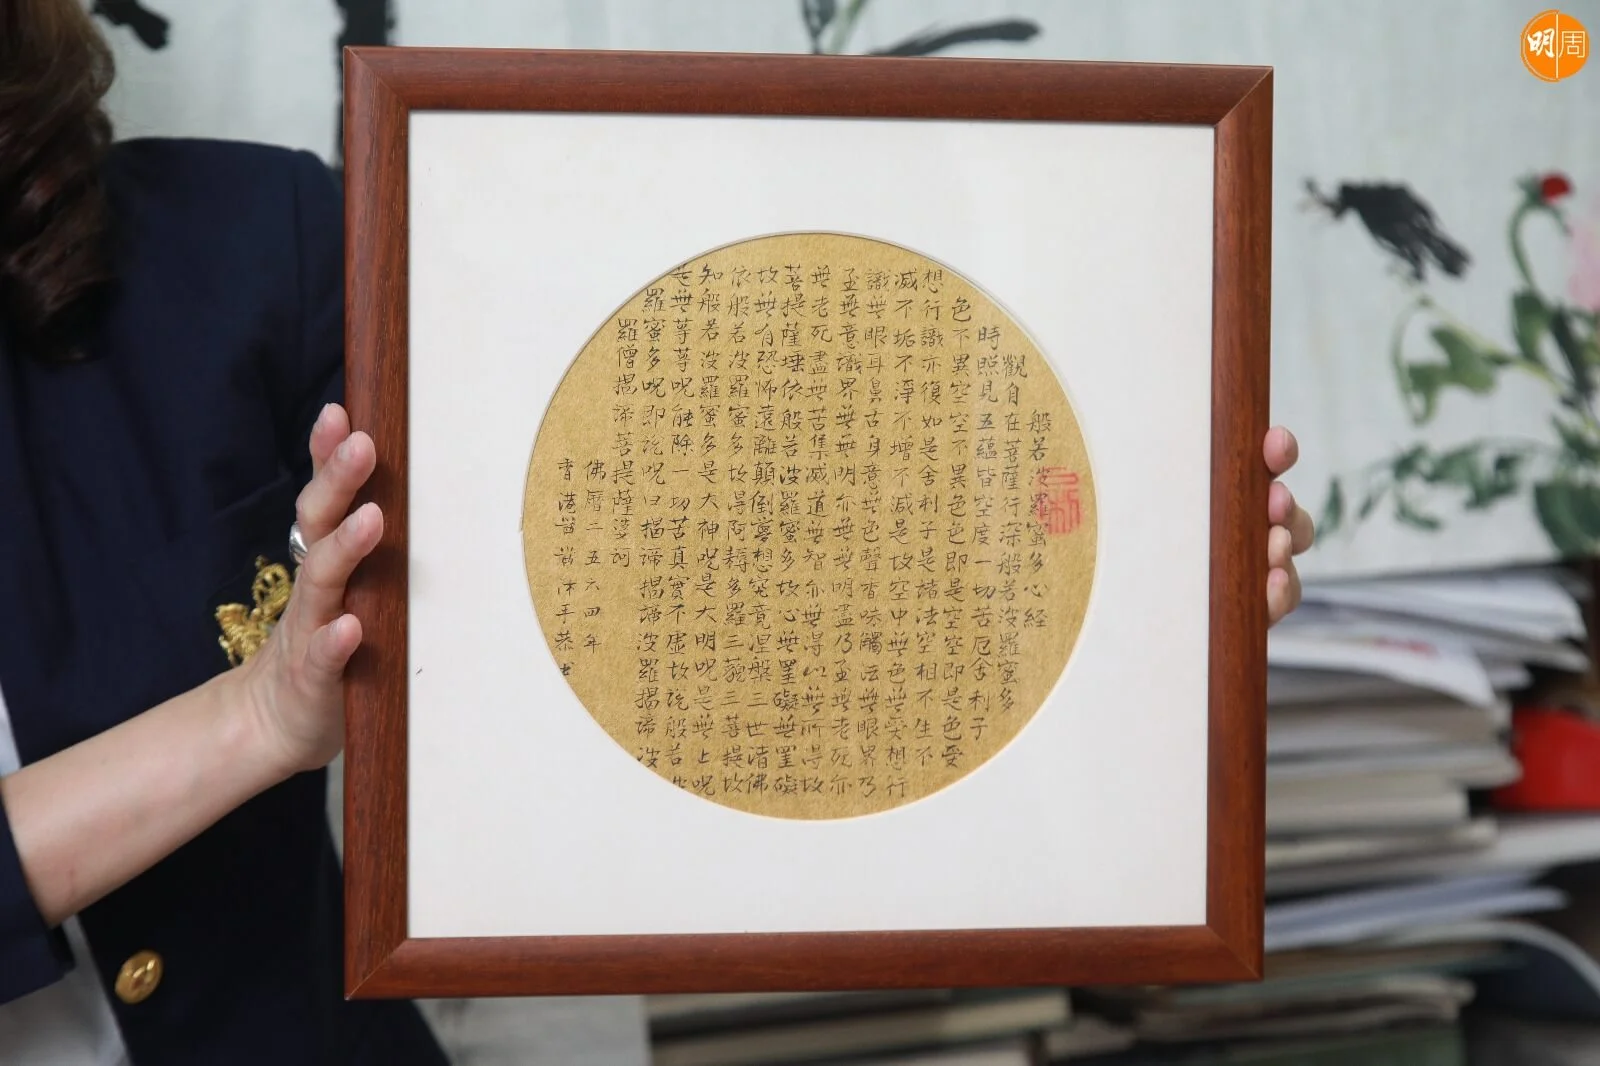 般若波羅蜜多心経
觀自在菩薩行深般若波羅蜜多
時照見五蘊皆空度一切苦厄舍利子
色不異空空不異色色即是空空即是色受
想行識亦復如是舍利子是諸法空相不生不
滅不垢不淨不增不減是故空中無色無受想行
識無眼耳鼻舌身意無色聲香味觸法無眼界乃
至無意識界無無明亦無無明盡乃至無老死亦
無老死盡無苦集滅道無智亦無得以無所得故
菩提薩埵依般若波羅蜜多故心無罣礙無罣礙
故無有恐怖遠離顛倒夢想究竟涅槃三世諸佛
依般若波羅蜜多故得阿耨多羅三藐三菩提故
知般若波羅蜜多是大神呪是大明呪是無上呪
無等等呪能除一切苦真實不虛故說般若
羅蜜多呪即說呪曰揭諦揭諦波羅揭諦波
羅僧揭諦菩提薩婆訶
佛曆二五六四年
香港沐手恭書
明周